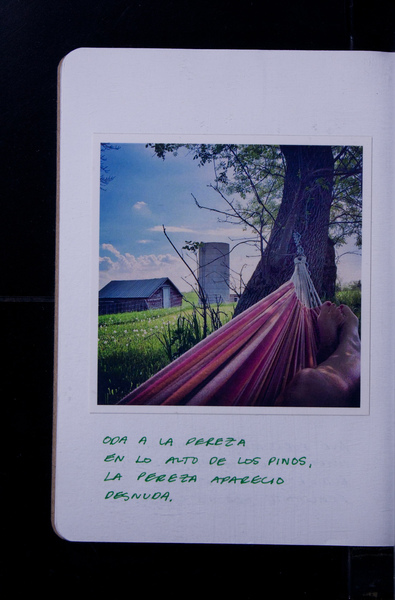 ODA A LA PEREZA
EN LO ALTO DE LOS PINOS,
LA PEREZA APARECIO
DESNUDA.